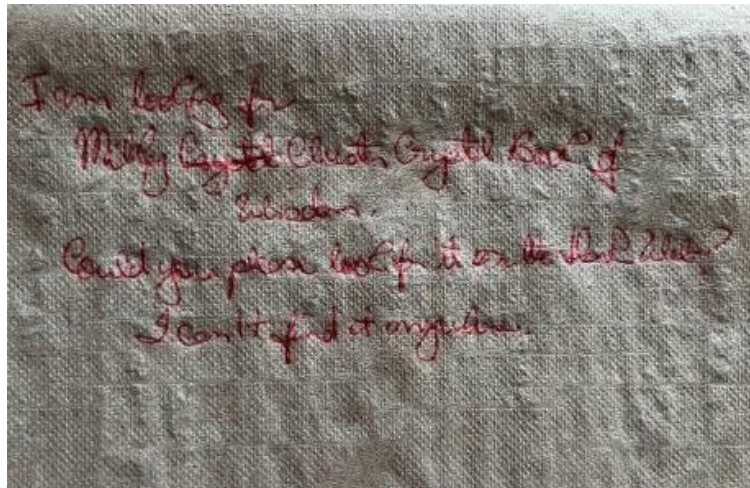 I am looking for
Milky Cluster Crystal Book of
Wisdom.
Could you please look for it on the Dark Web?
I can't find it anywhere.